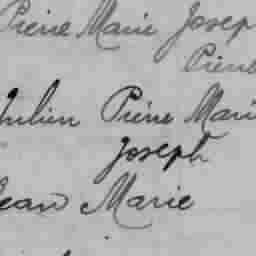 Pierre Marie Joseph
Pierre
Julien Pierre Marie
Joseph
Jean Marie